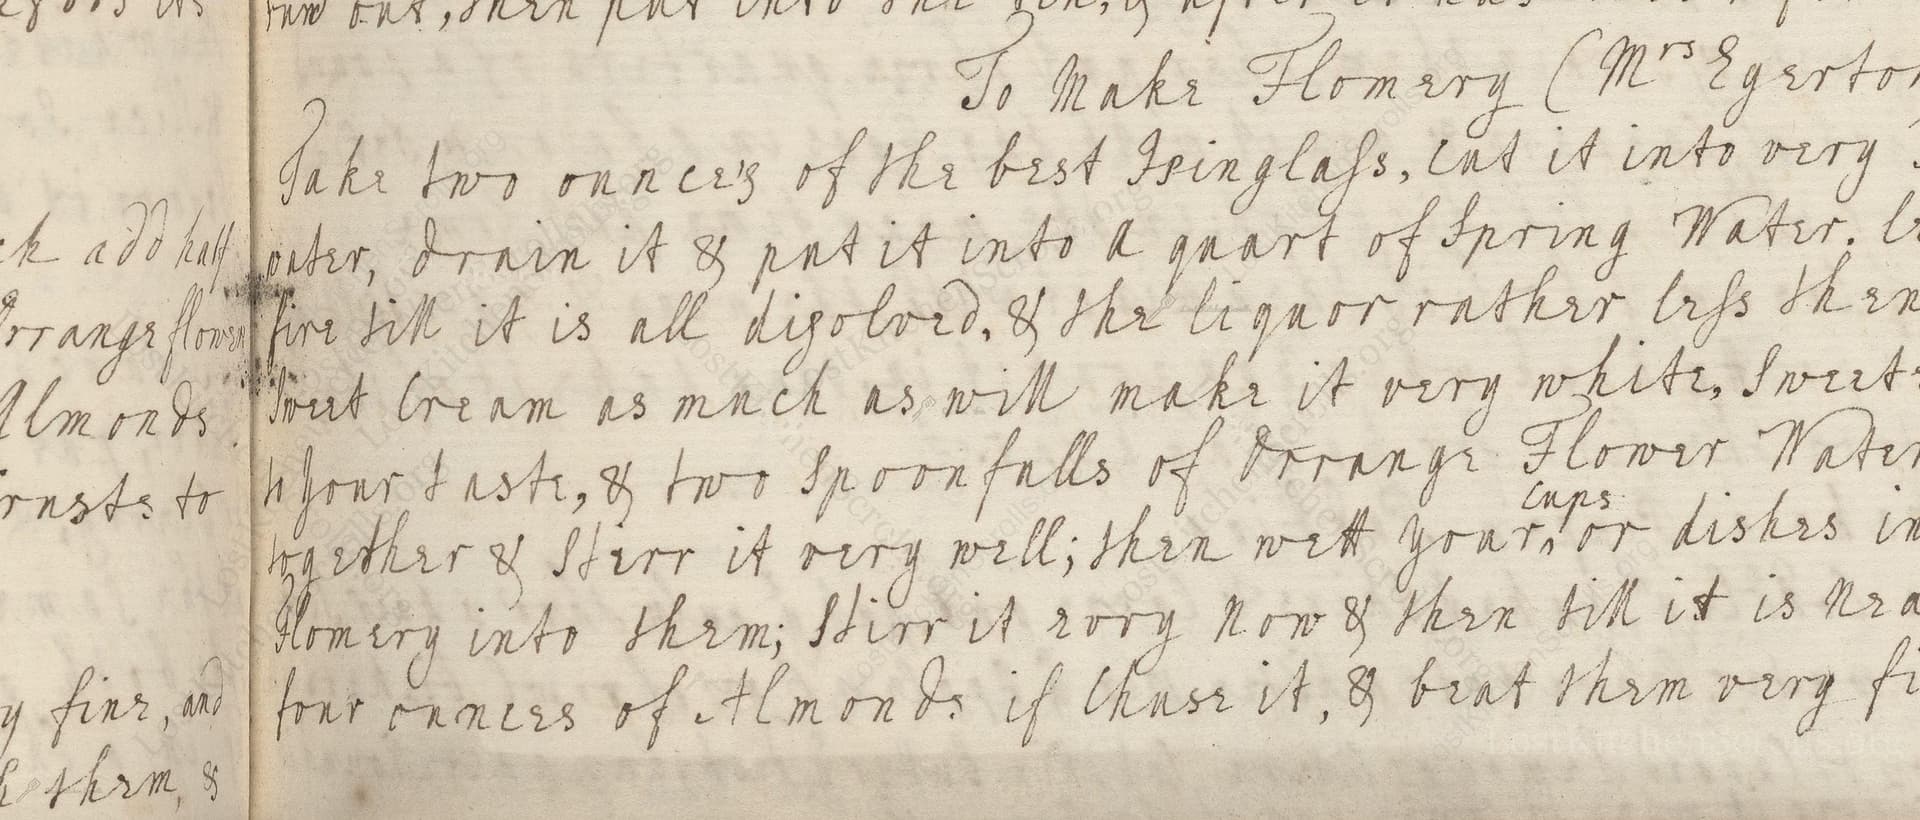 raw out, then put into the
To Make Flomery (Mrs Egerton
Take two ounce's of the best Isinglass, Cut it into very
water, drain it & put it into A quart of Spring Water. le
fire till it is all disolved, & the liquor rather less then
Sweet Cream as much as will make it very white, Sweete
to your taste, & two Spoonfulls of Orrange Flower Water
together & Sterr it very well; then wett your, cups or dishes in
Flomery into them; Stirr it evry Now & then till it is Nea
four ounces of Almonds if Chuse it, & beat them very fi
ck add half
Orrange flower
Almonds
to
y fine, and
them, &